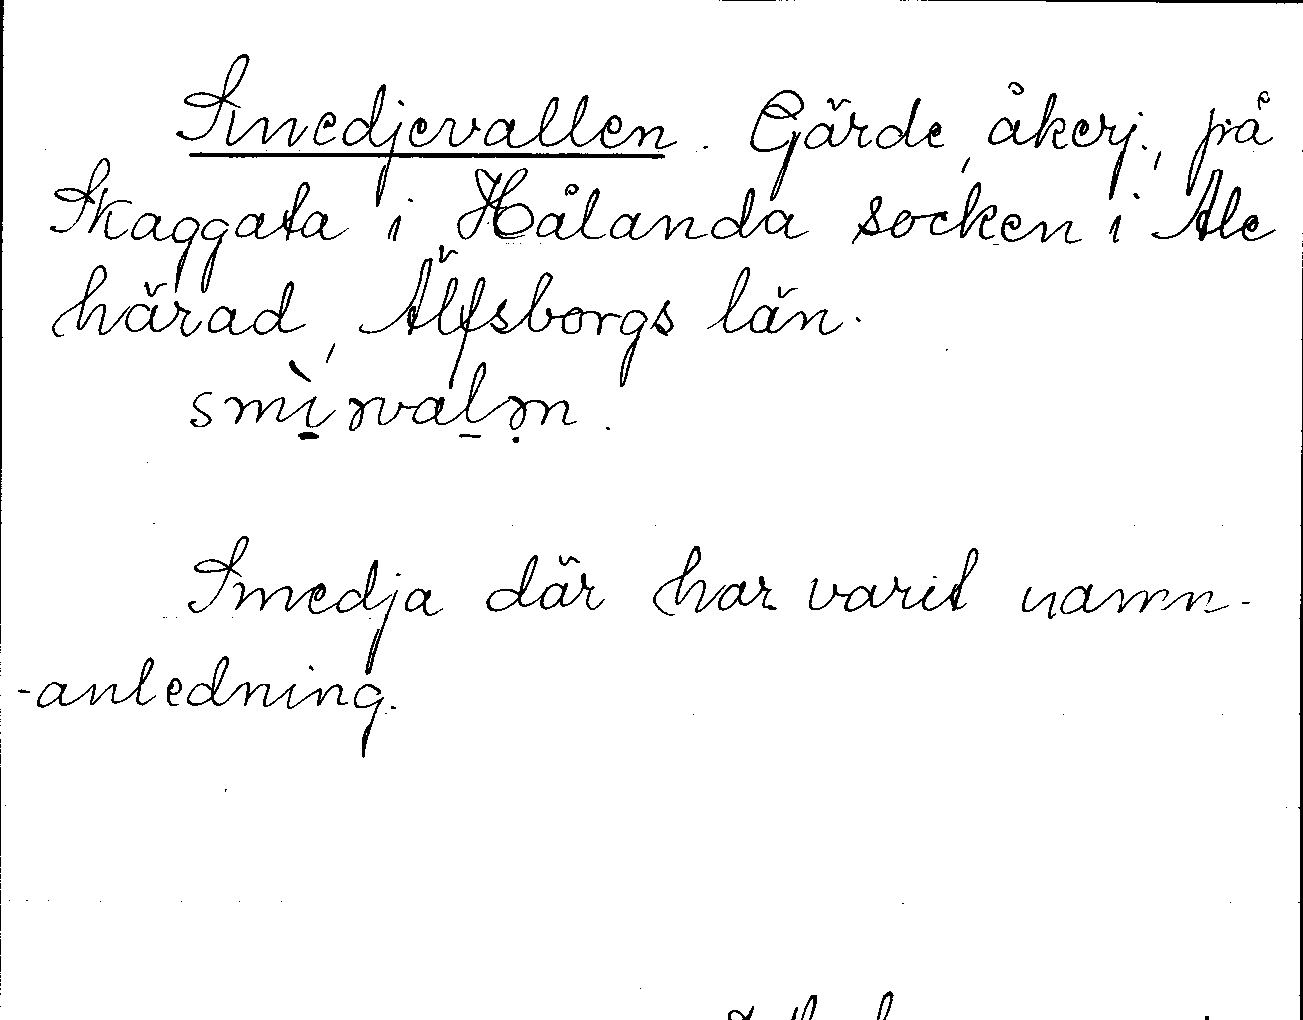 Smedjevallen. Gärde, åkerj., på
Skaggata i Hålanda socken i Ale
härad, Älfsborgs län.
Smedja där har varit namn-
-anledning.